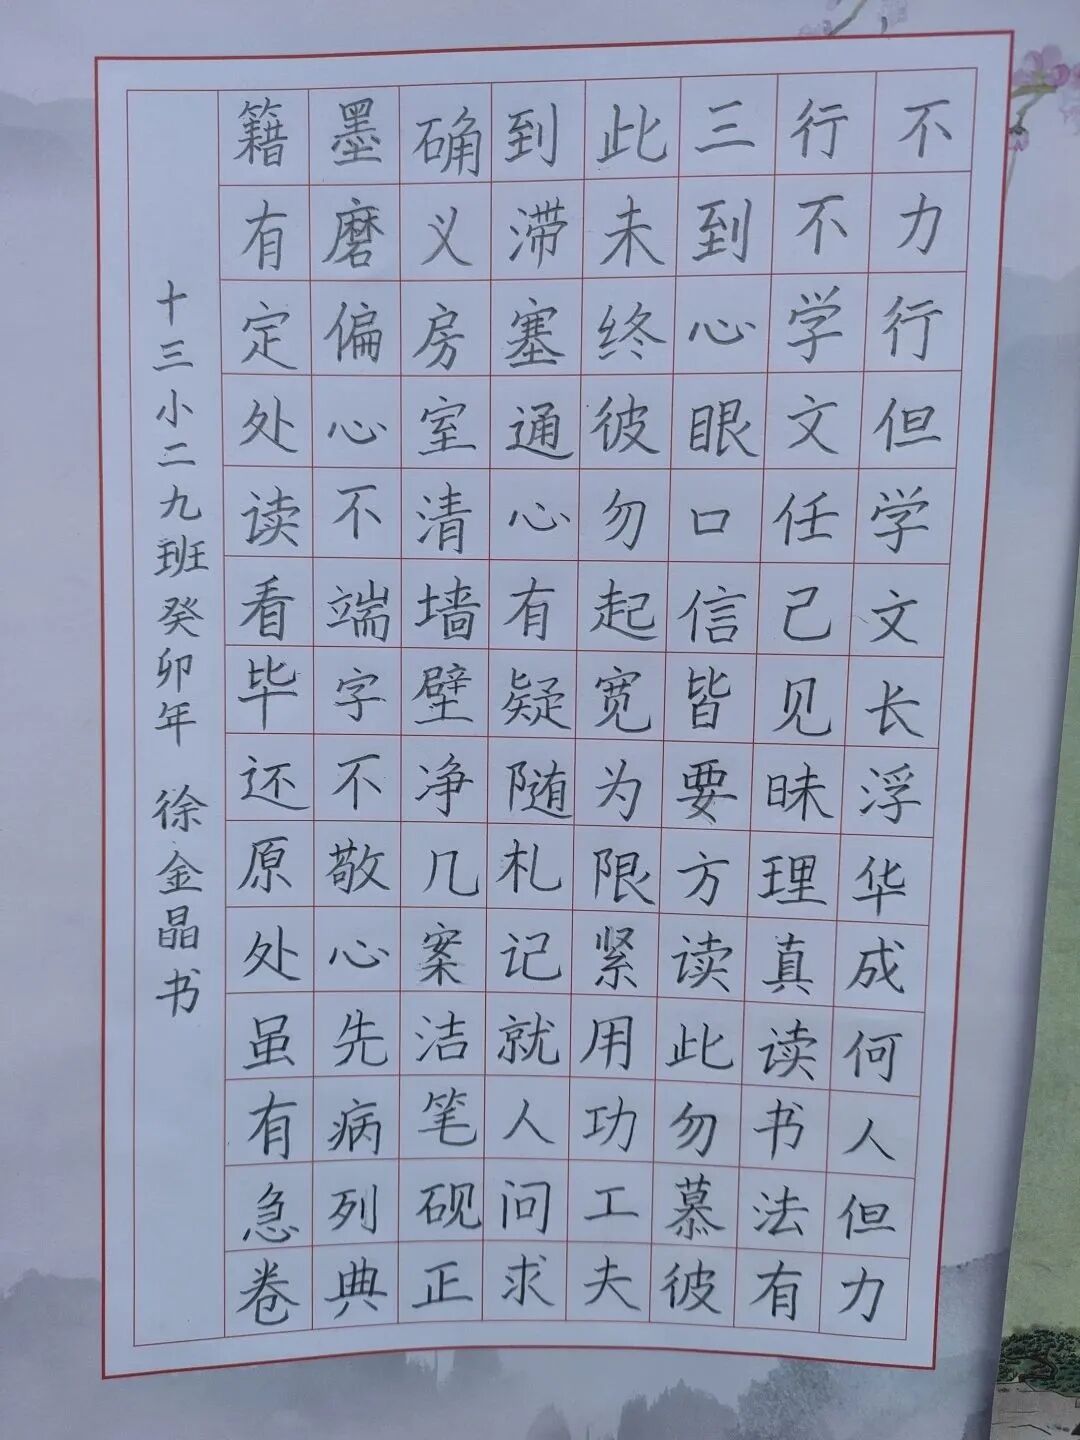 不力行但学文长浮华成何人但力
行不学文任己见昧理真读书法有
三到心眼口信皆要方读此勿慕彼
此未终彼勿起宽为限紧用功工夫
到滞塞通心有疑随札记就人问求
确义房室清墙壁净几案洁笔砚正
墨磨偏心不端字不敬心先病列典
籍有定处读看毕还原处虽有急卷
十三小二九班癸卯年 徐金晶书